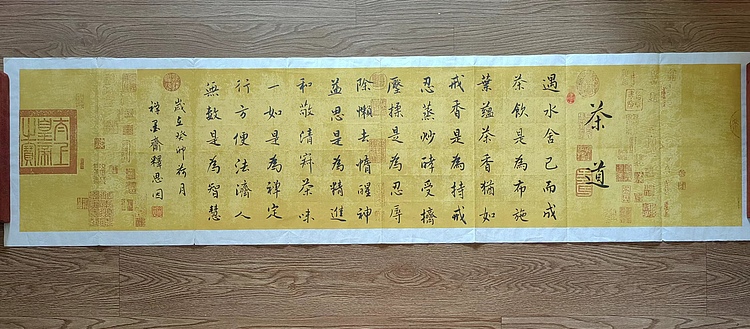 茶道
遇水舍己而成
茶飲是為布施
葉蘊茶香猶如
戒香是為持戒
忍蒸炒酵受擠
壓揉是為忍辱
除懶去惰醒神
益思是為精進
和敬清寂茶味
一如是為禪定
行方便法濟人
無數是為智慧
歲在癸卯荷月
禪墨齋釋思因
太上
皇帝
之寶